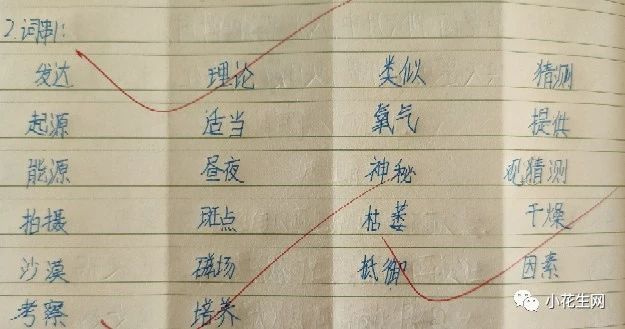 2.词串:
发达 理论 类似 猜测
起源 适当 氧气 提供
能源 昼夜 神秘 观猜测
拍摄 斑点 枯萎 干燥
沙漠 磁场 抵御 因素
考察 培养
小花生网